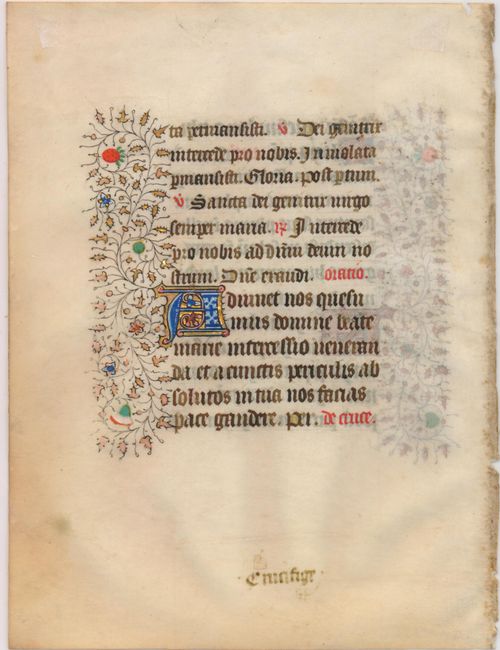 ta permansisti. v Dei genitrix
intercede pro nobis. Inviolata
permansisti. Gloria. Post partum.
v Sancta dei genitrix virgo
semper maria. R Intercede
pro nobis ad dnm deum no
strum. Dne exaudi. oratio.
Adiuvet nos quesu
mus domine beate
marie intercessio veneran
da et a cunctis periculis ab
solutos in tua nos facias
pace gaudere. Per. de cruce.
Crucifige